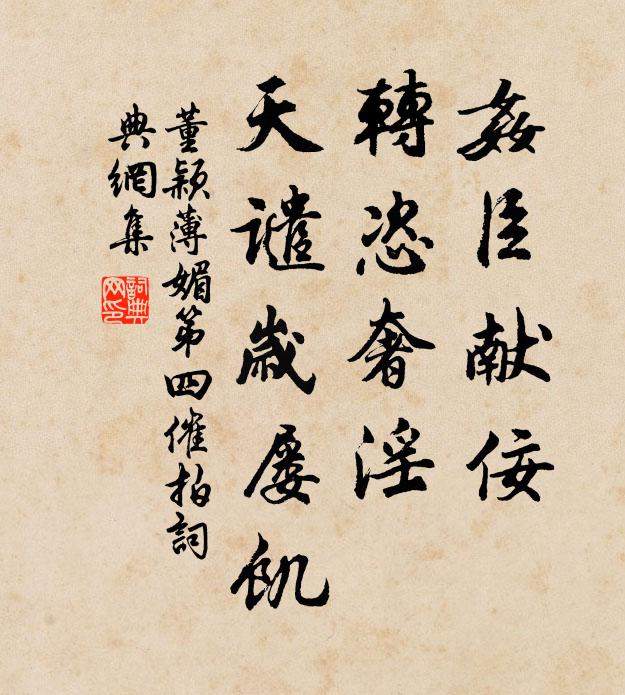 姦臣献佞
轉恣奢淫
天譴歲屡飢
董穎薄媚第四催拍詞
典網集
詞典网印